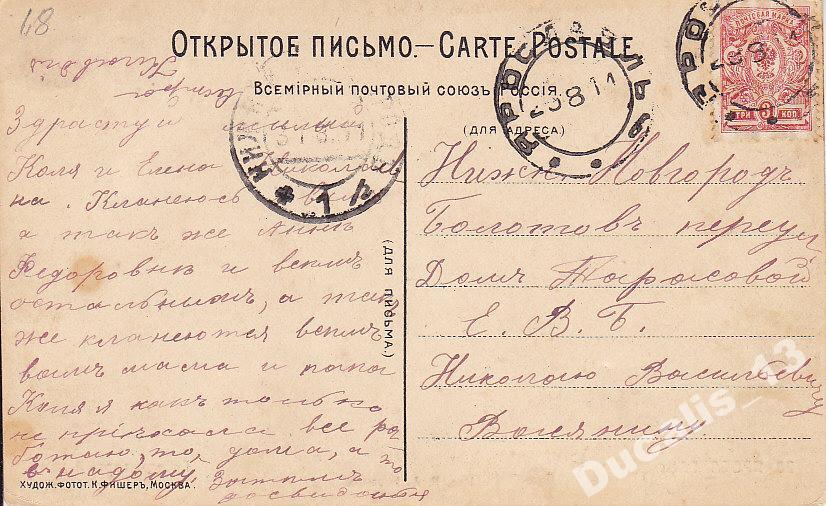 48
ОТКРЫТОЕ ПИСЬМО.—CARTE POSTALE
Всемірный почтовый союзъ Россія.
(ДЛЯ АДРЕСА.)
ПОЧТОВАЯ МАРКА
ТРИ 3 КОП
ЯРОСЛАВЛЬ
23 8 11
Здраствуй милый
Коля и Елена Никола
на. Кланеюсь вам
а такъ же Анне
Федоровне и всемъ
остальнымъ, а так
же кланеются всемъ
вамъ мама и папа
Коля я какъ только
не приехала все ра
ботаю то дома, а то
в надому. Затемъ
досвидония
(ДЛЯ ПИСЬМА.)
Нижни Новгородъ
Болотовъ переул
Домъ Тарасовой
Е. В. Б.
Николаю Васильевичу
ХУДОЖ. ФОТОТ. К. ФИШЕРЪ, МОСКВА.
Ducalis_13